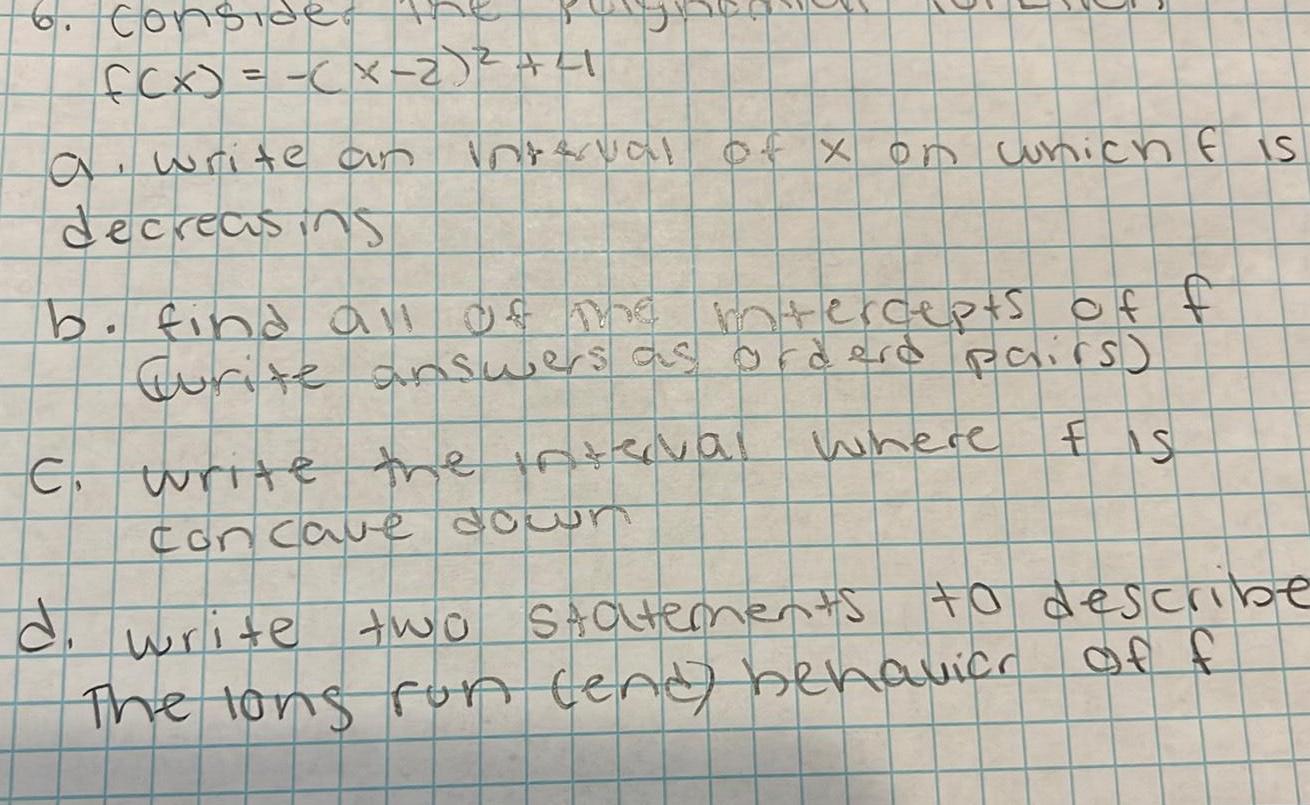 6. Consider the polynomial function
f(x) = -(x-2)² + 4
a. write an interval of x on which f is
decreasing
b. find all of the intercepts of f
(write answers as orderd pairs)
c. write the interval where f is
concave down
d. write two statements to describe
The long run (end) behavior of f